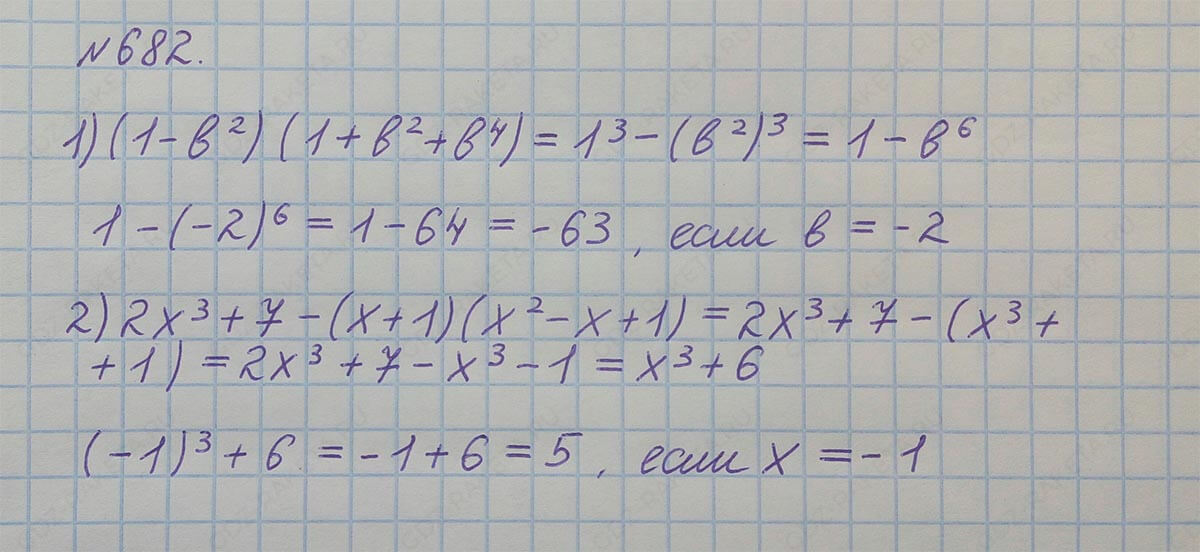 №682.
1) (1-в²) (1+в²+в⁴) = 1³-(в²)³ = 1-в⁶
1-(-2)⁶ = 1-64 = -63, если в = -2
2) 2х³+7-(х+1)(х²-х+1) = 2х³+7-(х³+
+1) = 2х³+7-х³-1 = х³+6
(-1)³+6 = -1+6 = 5, если х = -1